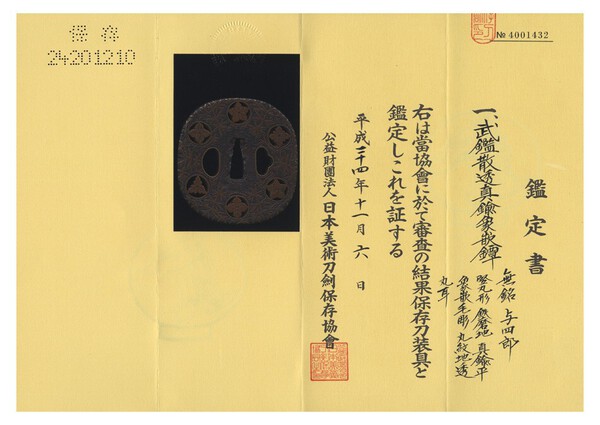 鑑定書
一、武鑑散透真鍮象嵌鐔
無銘 与四郎
竪丸形 鉄磨地 真鍮平
象嵌毛彫 丸紋地透
丸耳
右は當協會に於て審査の結果保存刀装具と
鑑定しこれを証する
平成二十四年十一月六日
公益財團法人 日本美術刀劍保存協會
№ 4001432
保存
24201210